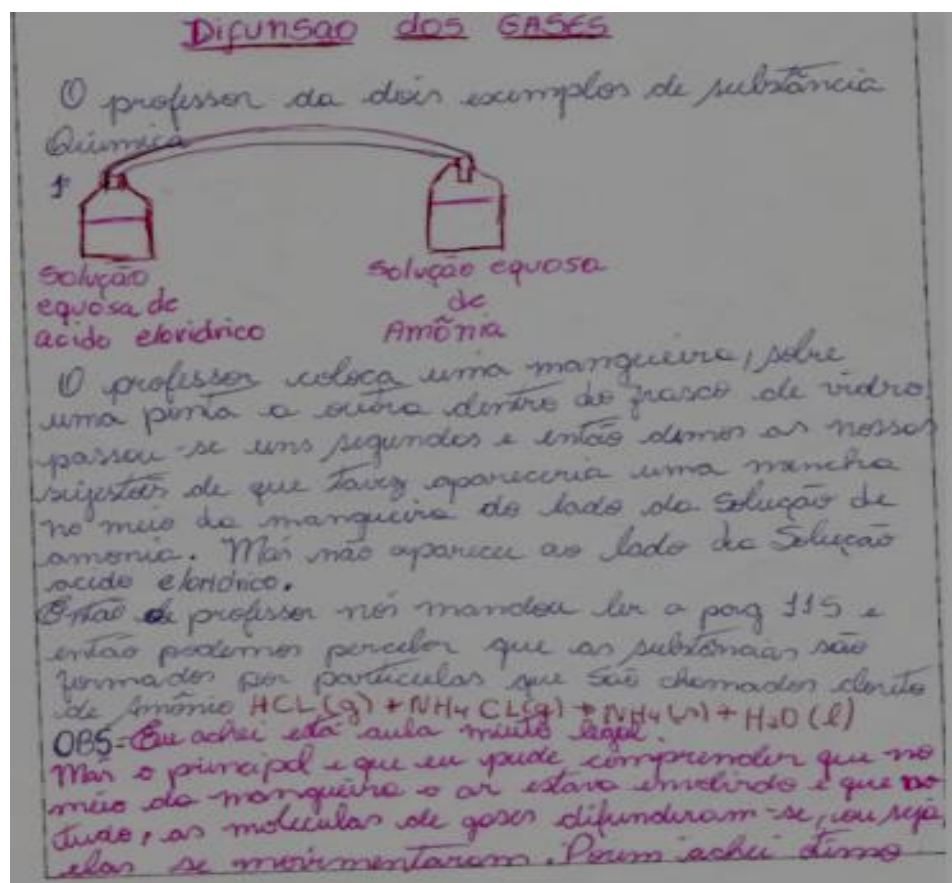 Difunsao dos GASES
O professor da dois exemplos de substância
Quimica
1º
Solução
equosa de
acido eloridrico
Solução equosa
de
Amônia
O professor coloca uma mangueira, sobre
uma ponta a outra dentro do frasco de vidro
passou-se uns segundos e então demos as nossas
sujestões de que tavez apareceria uma mancha
no meio da mangueira do lado da Solução de
amonia. Mas não apareceu ao lado da Solução
acido eloridrico.
Então o professor nos mandou ler a pag 115 e
então podemos perceber que as substancias são
formados por particulas que são chamados cloreto
de Amônio HCL(g) + NH4 CL(g) → NH4(s) + H2O (l)
OBS- Eu achei esta aula muito legal.
Mas o principal e que eu pude comprender que no
meio da mangueira o ar estava envolvido e que no
tudo, as moleculas de gases difundiram-se, ou seja,
elas se movimentaram. Porem achei otimo